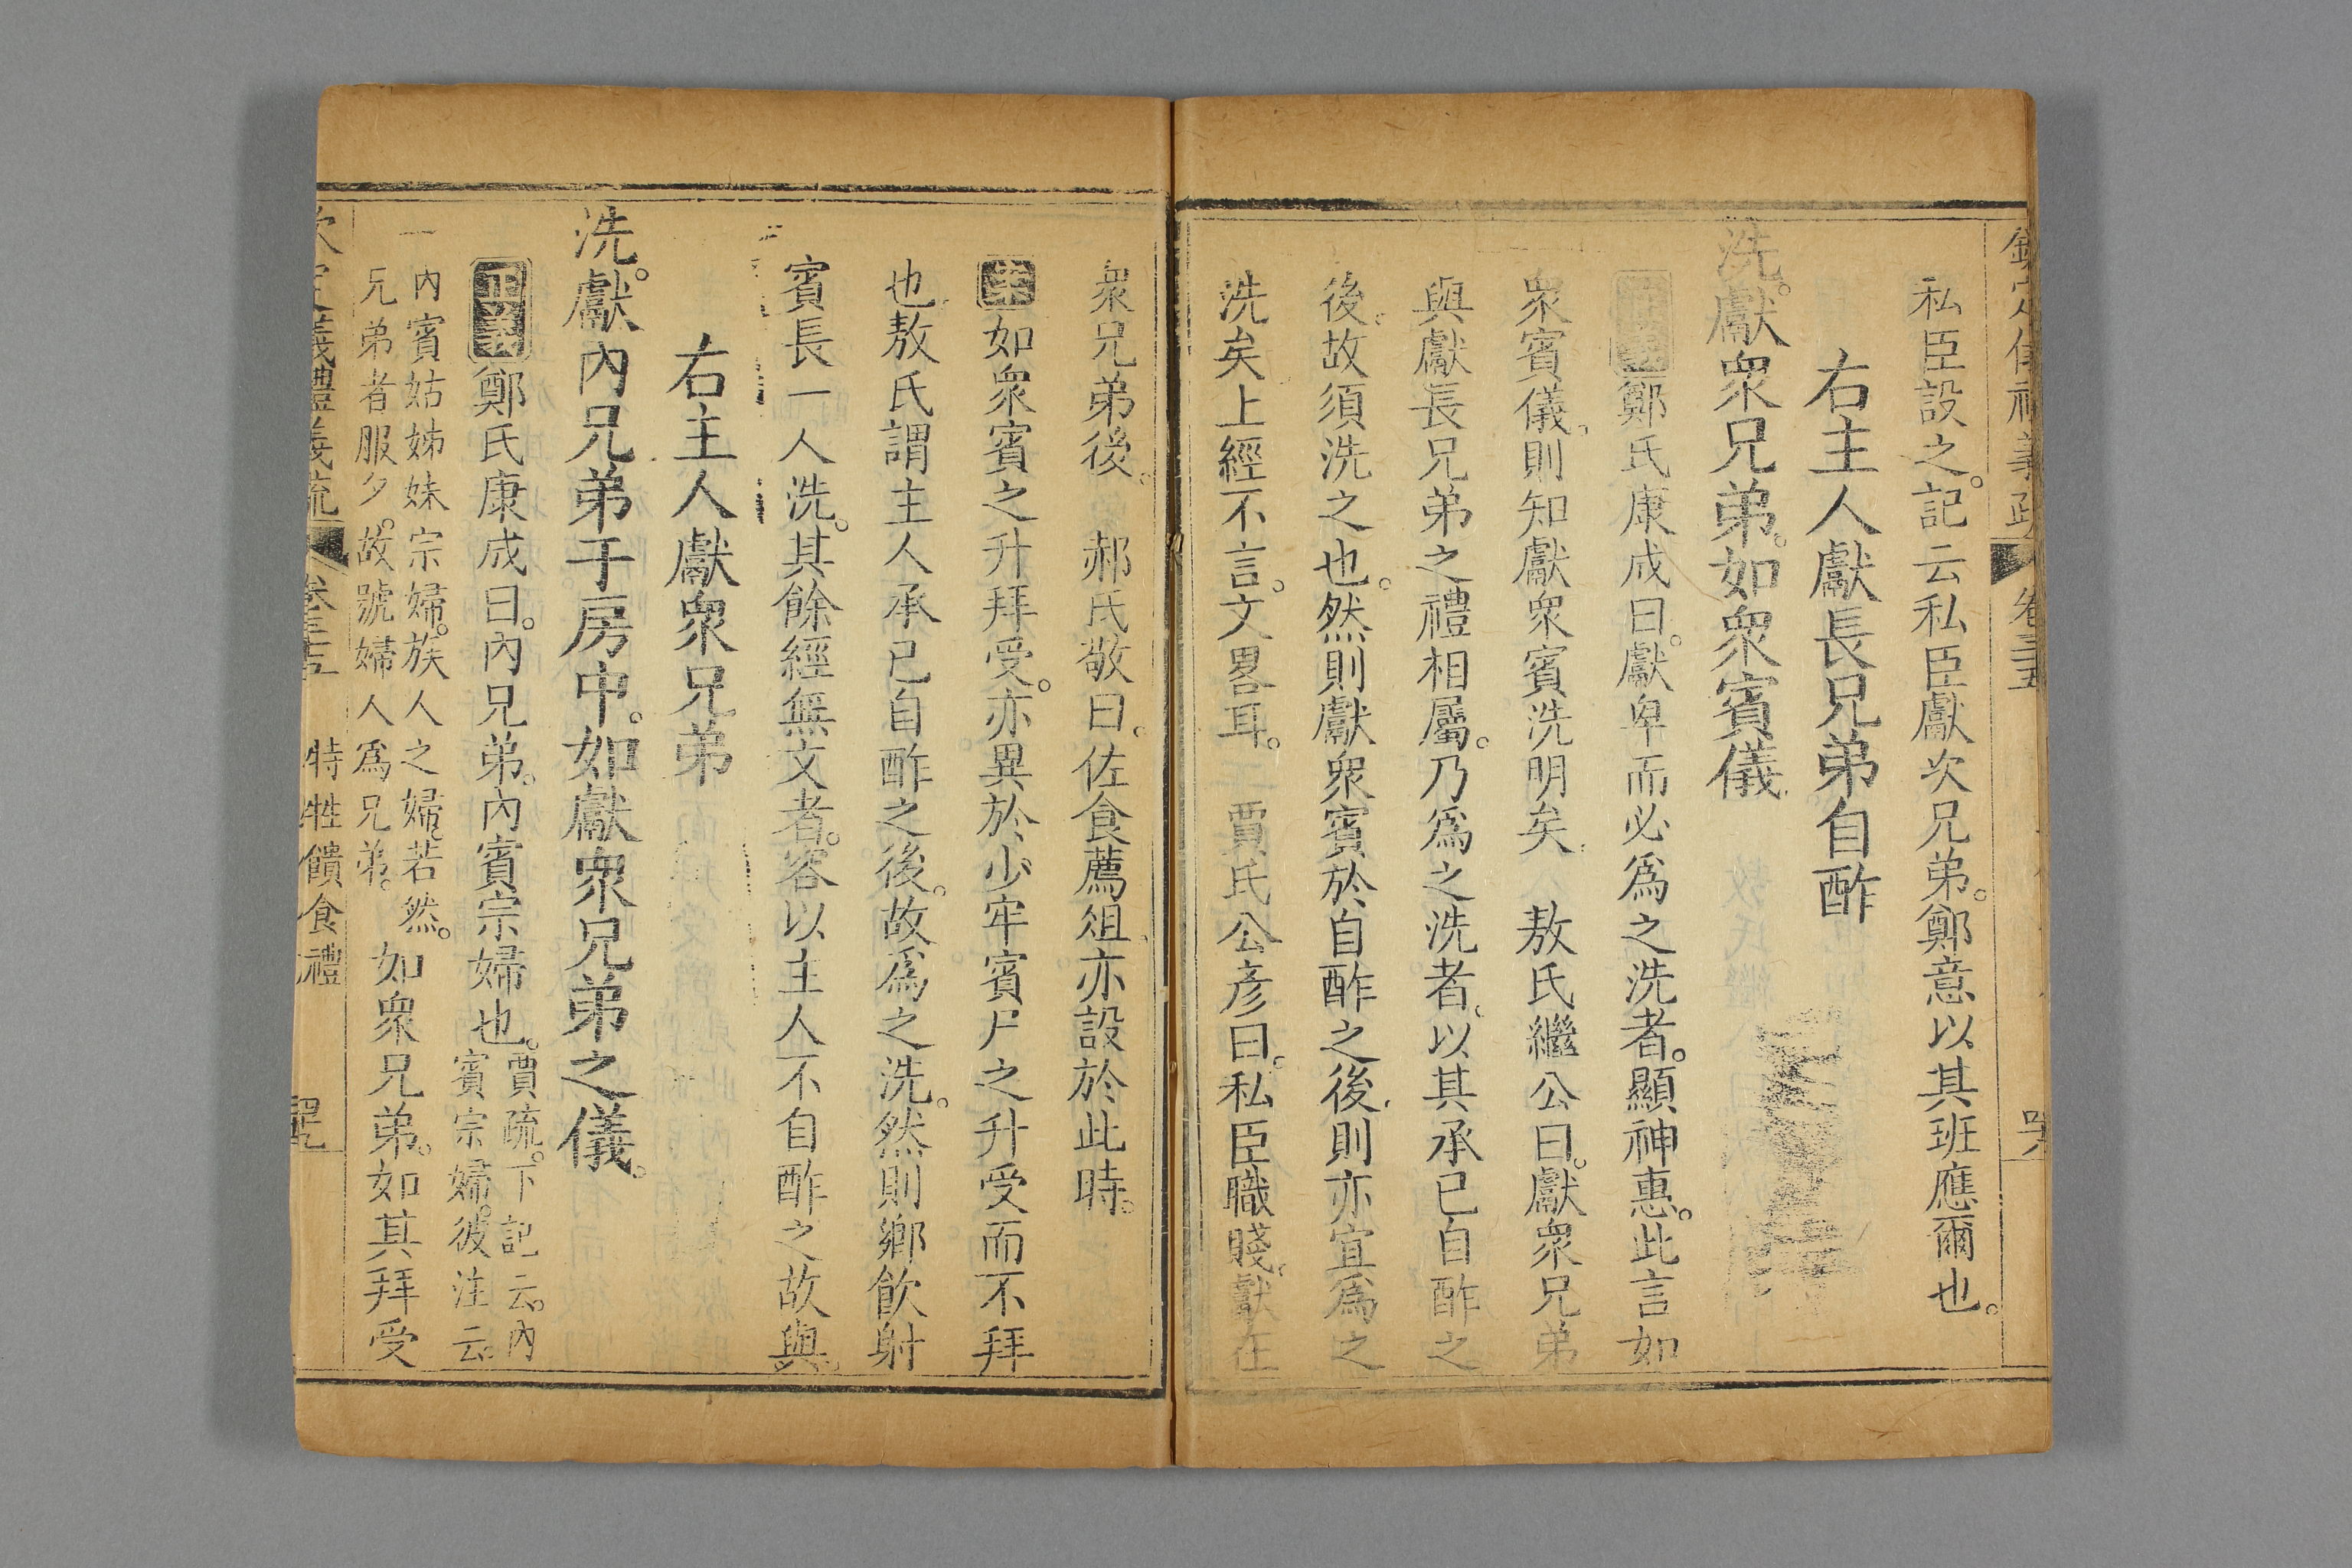 欽定儀禮義疏 卷三十五
私臣設之。記云私臣獻次兄弟。鄭意以其班應爾也。
右主人獻長兄弟自酢
洗。獻衆兄弟。如衆賓儀
正義鄭氏康成曰。獻卑而必爲之洗者。顯神惠。此言如
衆賓儀。則知獻衆賓洗明矣 敖氏繼公曰。獻衆兄弟
與獻長兄弟之禮相屬。乃爲之洗者。以其承已自酢之
後。故須洗之也。然則獻衆賓於自酢之後。則亦宜爲之
洗矣上經不言。文畧耳。 賈氏公彥曰。私臣職賤。獻在
衆兄弟後。 郝氏敬曰。佐食薦俎亦設於此時。
如衆賓之升拜受。亦異於少牢賓尸之升受而不拜
也敖氏謂主人承已自酢之後。故爲之洗。然則鄉飲射
賓長一人洗。其餘經無文者。容以主人不自酢之故與。
右主人獻衆兄弟
洗。獻內兄弟于房中。如獻衆兄弟之儀。
正義鄭氏康成曰。內兄弟。內賓宗婦也。賈疏。下記云。內
賓宗婦。彼注云。
內賓姑姊妹宗婦。族人之婦。若然。
兄弟者服夕。故號婦人爲兄弟。如衆兄弟。如其拜受
儀禮義疏 卷三十五 特牲饋食禮